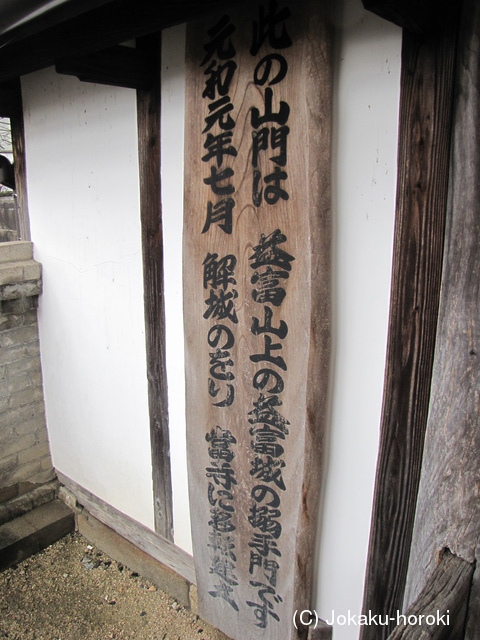 此の山門は 益富山上の益富城の搦手門です
元和元年七月 解城のをり 當寺に移転建立
(C) Jokaku-horoki